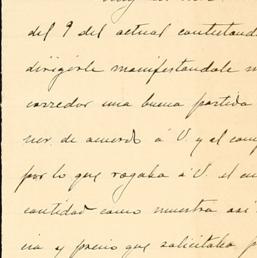 del 9 del actual contestando
dirigirle manifestandole
corredor una buena partida
ner de acuerdo á V. y al com
por lo que rogaba á V. el en
cantidad como muestra asi
cia y precio que solicitaba p